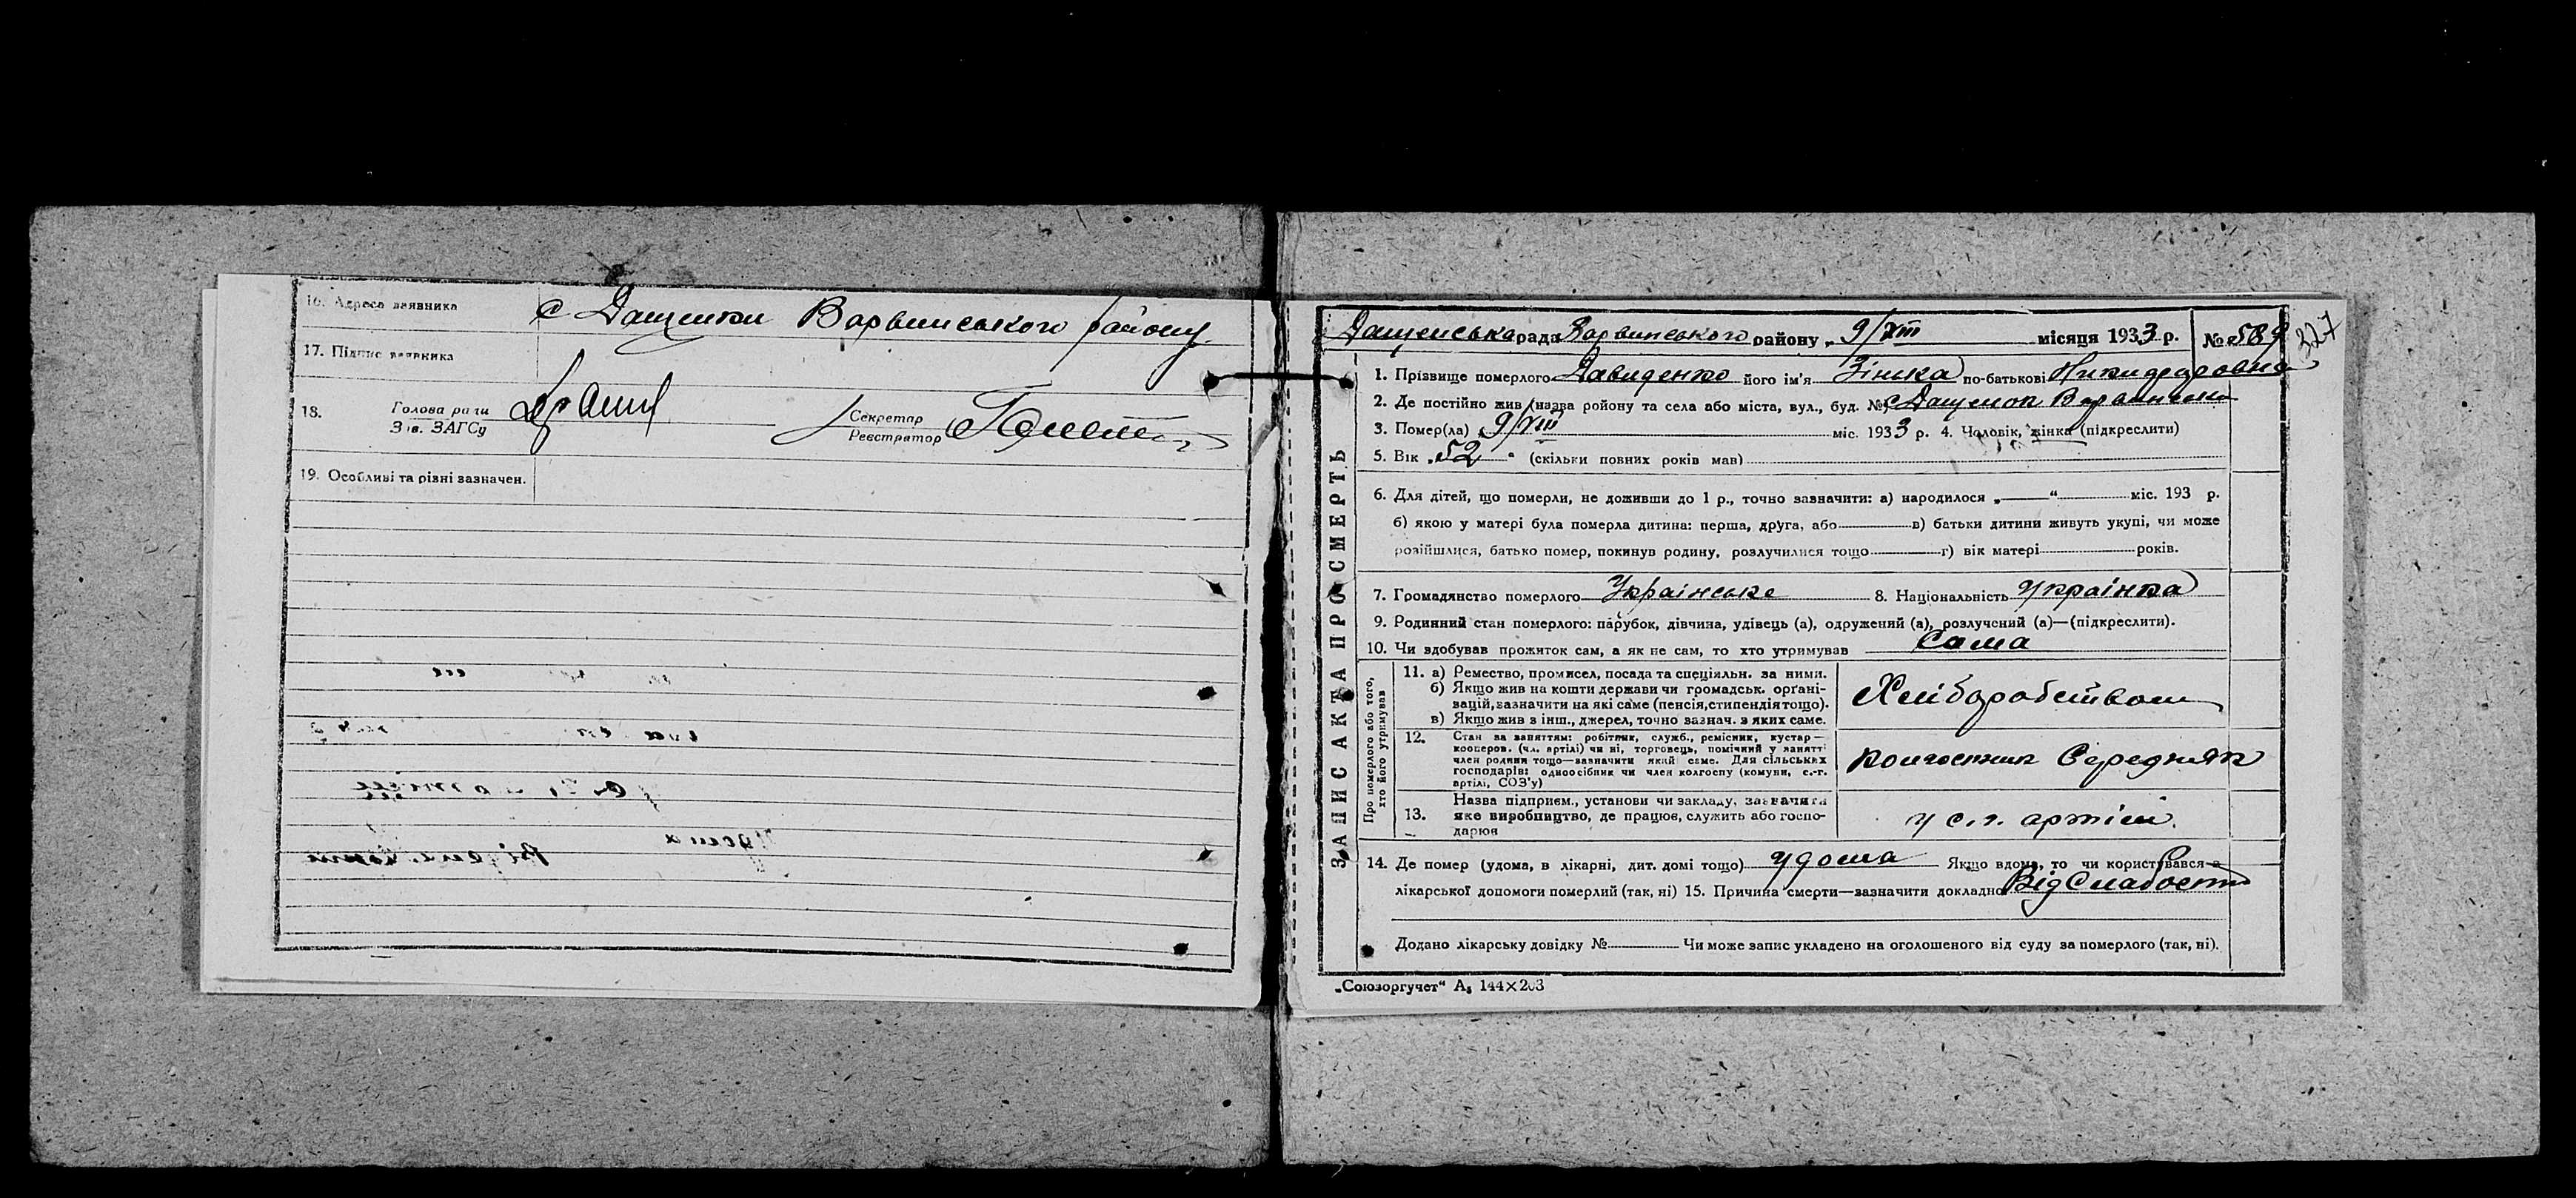 16. Адреса заявника с Дащенки Варвинського району
17. Підпис заявника
18. Голова ради
Зав. ЗАГСу
Секретар
Реєстратор
19. Особливі та різні зазначен.
Дащенська рада Варвинського району „ 9/XIII місяця 1933 р. № 589
327
ЗАПИС АКТА ПРО СМЕРТЬ
1. Прізвище померлого Давиденко його ім'я Зінька по-батькові Никифоровна
2. Де постійно жив (назва району та села або міста, вул., буд. №) с Дащенок Варвинськ
3. Помер(ла) „ 9/XIII міс. 1933 р. 4. Чоловік, жінка (підкреслити)
5. Вік „ 52 " (скільки повних років мав)
6. Для дітей, що померли, не доживши до 1 р., точно зазначити: а) народилося „ “ міс. 193 р.
б) якою у матері була померла дитина: перша, друга, або в) батьки дитини живуть укупі, чи може
розійшлися, батько помер, покинув родину, розлучилися тощо г) вік матері років.
7. Громадянство померлого Українське 8. Національність Українка
9. Родинний стан померлого: парубок, дівчина, удівець (а), одружений (а), розлучений (а)—(підкреслити).
10. Чи здобував прожиток сам, а як не сам, то хто утримував Сама
Про померлого або того,
хто його утримував
11. а) Ремество, промисел, посада та спеціяльн. за ними.
б) Якщо жив на кошти держави чи громадськ. орґані-
зацій, зазначити на які саме (пенсія, стипендія тощо).
в) Якщо жив з інш., джерел, точно зазнач. з яких саме.
Хліборобством
12. Стан за заняттям: робітник, служб., ремісник, кустар—
кооперов. (чл. артілі) чи ні, торговець, помічний у занятті
член родини тощо—зазначити який саме. Для сільських
господарів: одноосібник чи член колгоспу (комуни, с.-г.
артілі, СОЗ'у)
колгоспник Середняк
13. Назва підприєм., установи чи закладу, зазначити
яке виробництво, де працює, служить або госпо-
дарює
у с.г. артілі
14. Де помер (удома, в лікарні, дит. домі тощо) удома Якщо вдома, то чи користувався
лікарської допомоги померлий (так, ні) 15. Причина смерти—зазначити докладно Від Слабости
Додано лікарську довідку № Чи може запис укладено на оголошеного від суду за померлого (так, ні).
„Союзоргучет“ А₅ 144×203